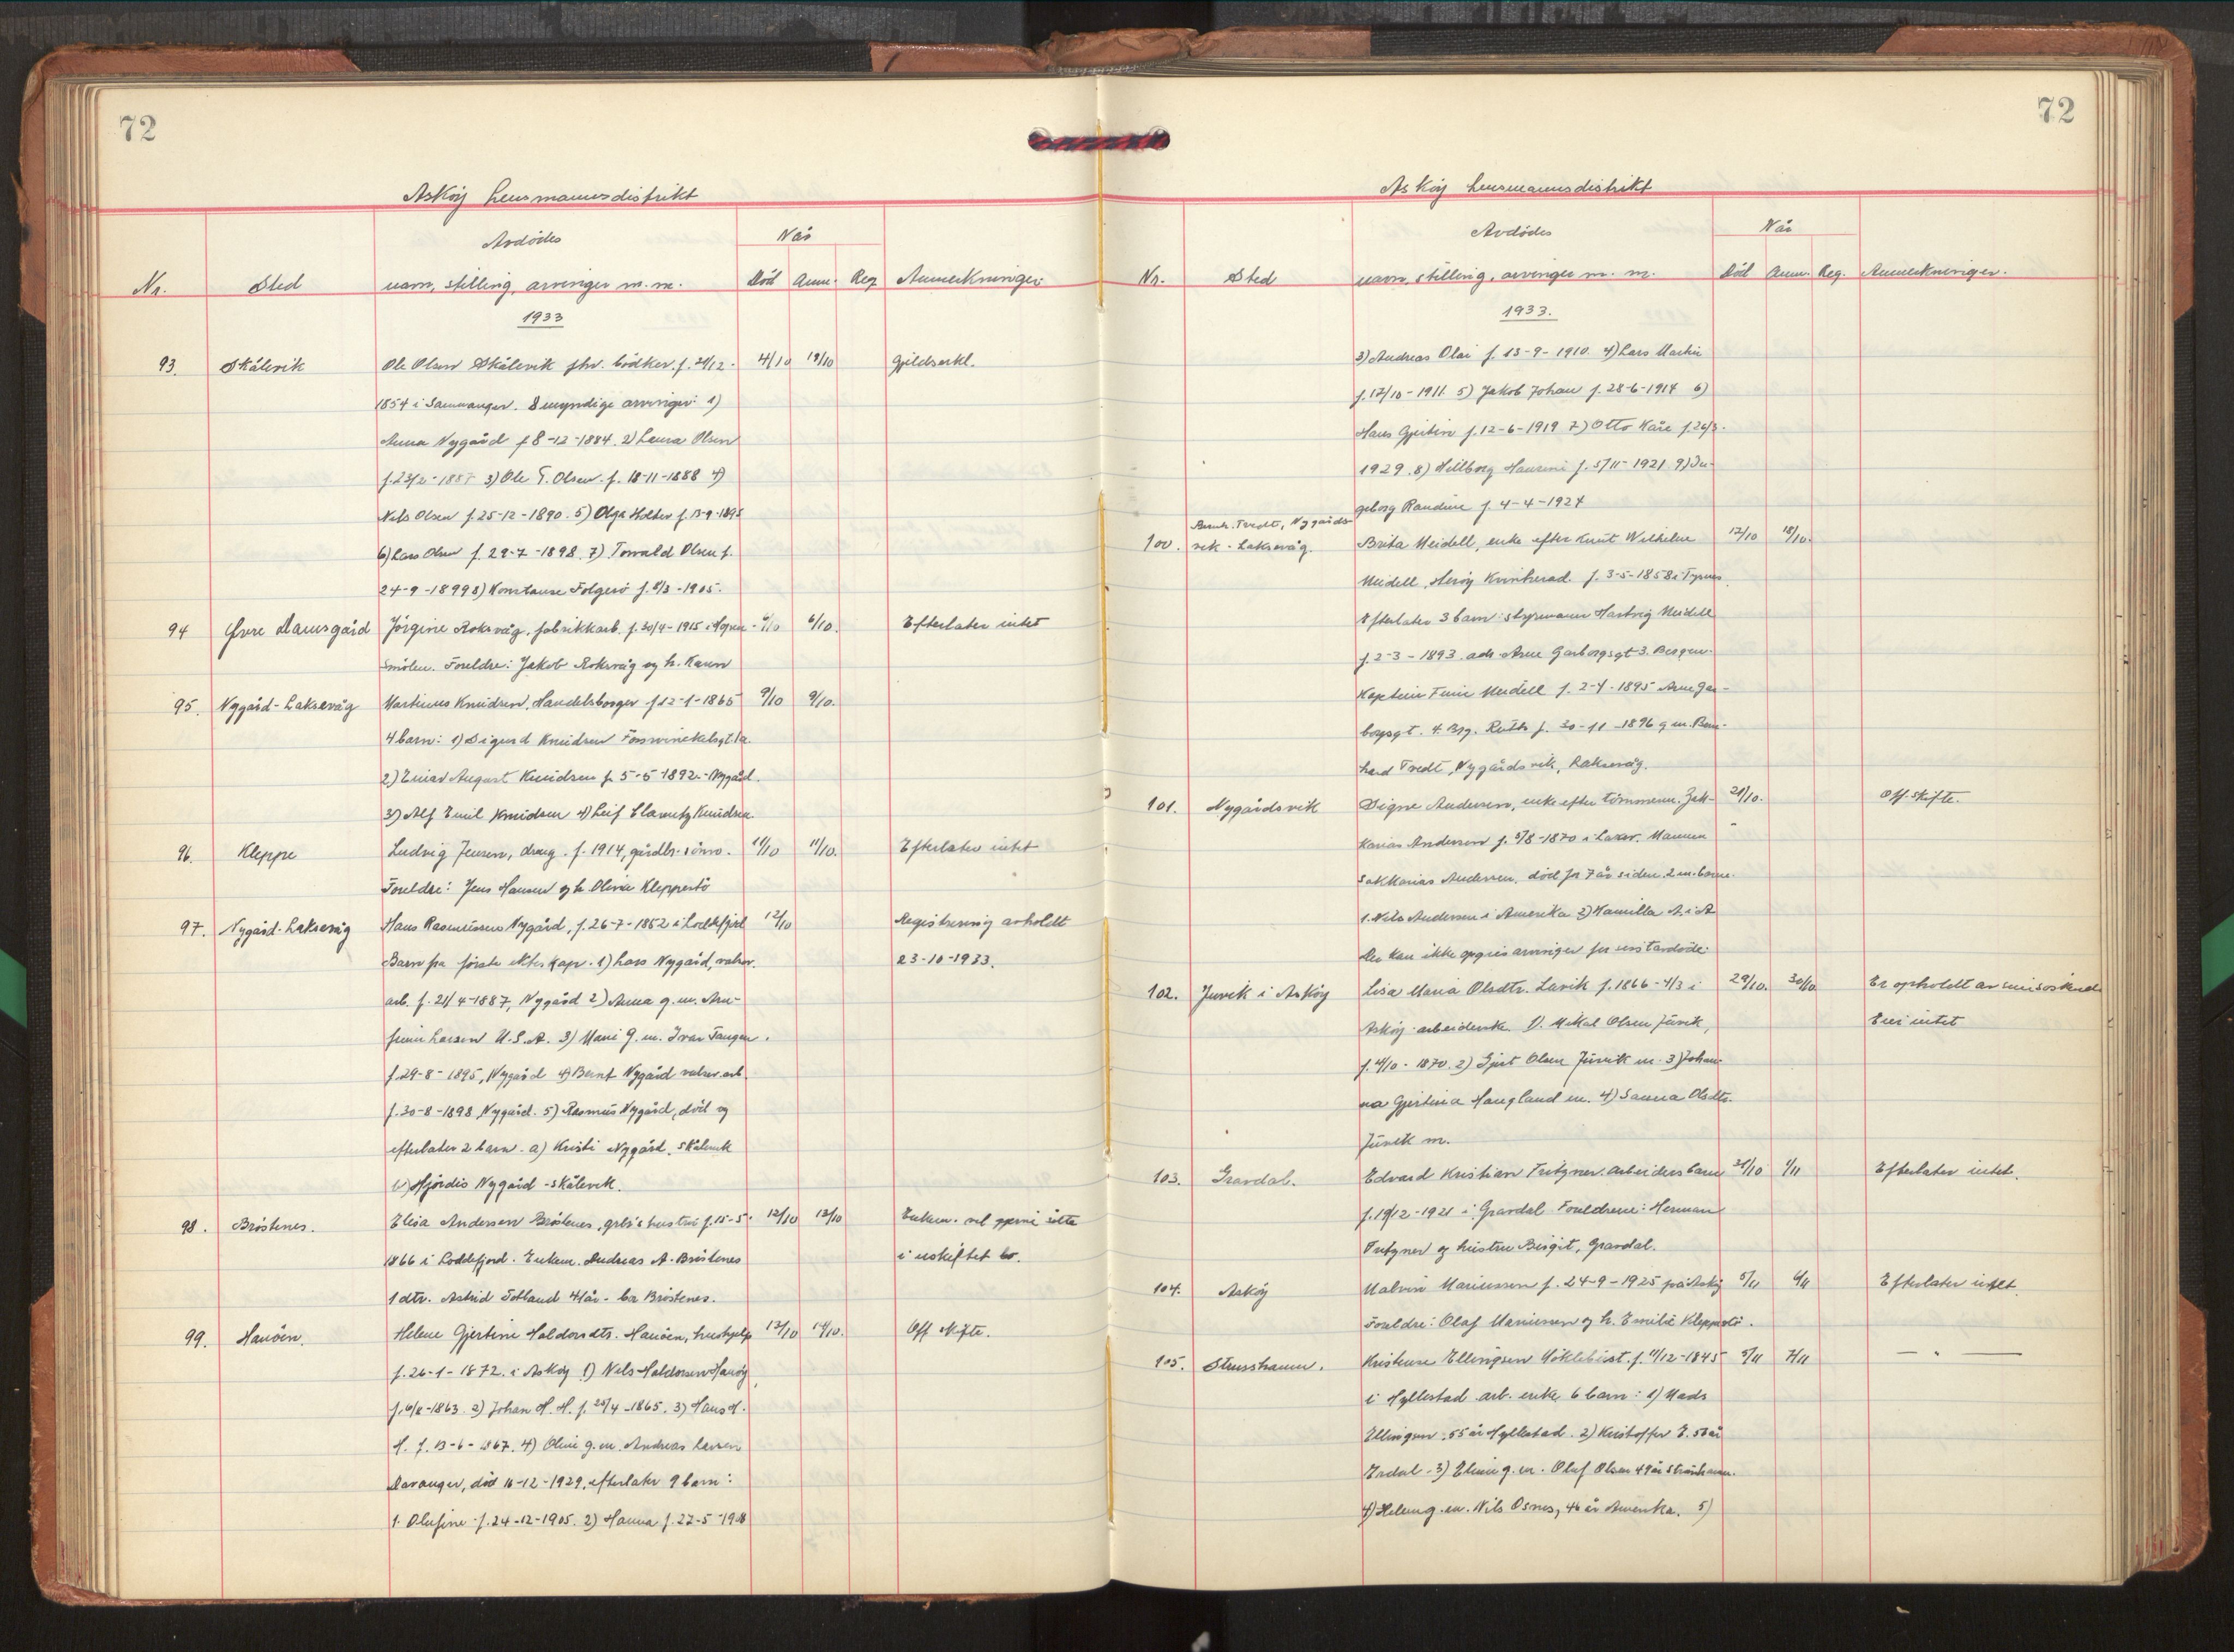 72
Askøy Lensmannsdistrikt
Avdödes
Når
Nr. Sted navn, stilling, arvinger m. m. Död Anm. Reg Anmerkninger
1933
93. Skålevik Ole Olsen Skålevik fhv. bödker. f. 24/12- 4/10 19/10 Gjeldserkl.
1854 i Samnanger. 8 myndige arvinger: 1)
Anna Nygård f 8-12-1884. 2) Laura Olsen
f. 23/2-1887 3) Ole T. Olsen. f. 18-11-1888 4)
Nils Olsen f. 25-12-1890. 5) Olga Holter f. 13-9-1895
6) Lars Olsen f. 29-7-1898. 7) Torvald Olsen f.
24-9-1899 8) Konstanse Folgerö f. 8/3-1905.
94 Övre Damsgård Jörgine Roksvåg, fabrikkarb. f. 30/4-1915 6/10 6/10. Efterlater intet
Smölen. Foreldre: Jakob Roksvåg og h. Karen
95. Nygård-Laksevåg Martinus Knudsen, Handelsborger f 12-1-1865 9/10 9/10.
4 barn: 1) Sigurd Knudsen Fosswinckelsgt. 1a.
2) Einar August Knudsen f. 5-5-1892.-Nygård.
3) Alf Emil Knudsen 4) Leif Knudsen
96. Kleppe Ludvig Jensen, dreng. f. 1914, gårdbr. sönn. 11/10 11/10. Efterlater intet
Foreldre: Jens Hansen og h. Olina Kleppestö
97. Nygård-Laksevåg Hans Rasmussen Nygård, f. 26-7-1852 i Loddefjord 12/10 Registrering avholdt
Barn fra förste ekteskap. 1) Lars Nygård, 23-10-1933.
arb. f. 21/4-1887, Nygård 2) Anna g. m.
Larsen U.S.A. 3) Marie g. m. Ivar Tangen.
f. 29-8-1895, Nygård 4) Bernt Nygård
f. 30-8-1898 Nygård. 5) Rasmus Nygård, död og
efterlater 2 barn. a) Kristi Nygård, Skålevik
b) Hjördis Nygård-Skålevik.
98. Bröstenes. Elisa Andersen Bröstenes, grbr's hustru f. 15-5- 12/10 13/10 Enkem. vil gjerne sitte
1866 i Loddefjord. Enkem. Andreas A. Bröstenes i uskiftet bo.
1 dtr. Astrid Totland 41 år. bor Bröstenes.
99. Hanöen. Helene Gjertine Haldorsdtr. Hanöen, hushjelp 13/10 14/10. Off skifte.
f. 26-1-1872. i Askøy 1) Nils Haldorsen Hanöy
f. 6/8-1863. 2) Johan H. H. f. 25/4-1865. 3) Hans H.
H. f. 13-6-1867. 4) Oline g. m. Andreas Larsen
Davanger, död 16-12-1929, efterlater 9 barn:
1. Olufine f. 24-12-1905. 2) Hanna f. 27-5-1908
72
Askøy Lensmannsdistrikt
Avdödes
Når
Nr. Sted navn, stilling, arvinger m. m. Död Anm. Reg. Anmerkninger.
1933.
3) Andreas Olai f. 13-9-1910. 4) Lars Martin
f. 17/10-1911. 5) Jakob Johan f. 28-6-1914 6)
Hans Gjertin f. 12-6-1919 7) Otto Kåre f. 26/3-
1929. 8) Hillborg Hansine f. 5/11-1921 9) In-
geborg Randine f. 4-4-1924
Bernh. Tvedt, Nygårds-
100. vik-Laksevåg. Brita Meidell, enke efter Knut Wilhelm 17/10 18/10.
Meidell, Kvinherad. f. 3-5-1858 i Tysnes.
Efterlater 3 barn: styrmann Hartvig Meidell
f. 2-3-1893. adr. Arne Garborgsgt 3. Bergen.
Kaptein Meidell f. 2-4-1895 Arne Gar-
borgsgt. 4. Brg. Ruth f. 30-11-1896 g m. Bern-
hard Tvedt, Nygårdsvik, Laksevåg.
101. Nygårdsvik Signe Andersen, enke efter tömmerm. Zak- 21/10. Off. skifte.
karias Andersen f. 5/8-1870 i Mannen
Sakkarias Andersen, död for 7 år siden. 2 m. barn.
1. Nils Andersen i Amerika 2) Kamilla A. i A
Der kan ikke opgies arvinger
102. Juvik i Askøy Lisa Maria Olsdtr. Juvik f. 1866-4/3 i 29/10. 30/10 Er opholdt av sine söskende
Askøy. arbeiderske. 1). Mikal Olsen Juvik, Eier intet
f. 4/10-1870. 2) Gjert Olsen Juvik m. 3) Johan-
na Gjertina Haugland m. 4) Sanna Olsdtr.
Juvik m.
103. Gravdal. Edvard Kristian Fritzner. arbeiders barn 31/10 1/11 Efterlater intet.
f. 19/12-1921 i Gravdal Foreldrene: Herman
Fritzner og hustru Birgit, Gravdal.
104. Askøy Malvin Mariussen f. 24-9-1925 på Askøy 5/11 6/11 Efterlater intet.
Foreldre: Olaf Mariussen og h. Emilie Kleppestö.
105. Strusshamn. Kristense Ellingsen Myklebust. f. 11/12-1845 5/11 7/11 — " —
i Hyllestad arb. enke 6 barn: 1) Mads
Ellingsen. 55 år Hyllestad. 2) Kristoffer E. 53 år
Erdal. 3) Eline g. m. Oluf Olsen 49 år Strusshamn.
4) Helene g. m. Nils Osnes, 46 år Amerika. 5)